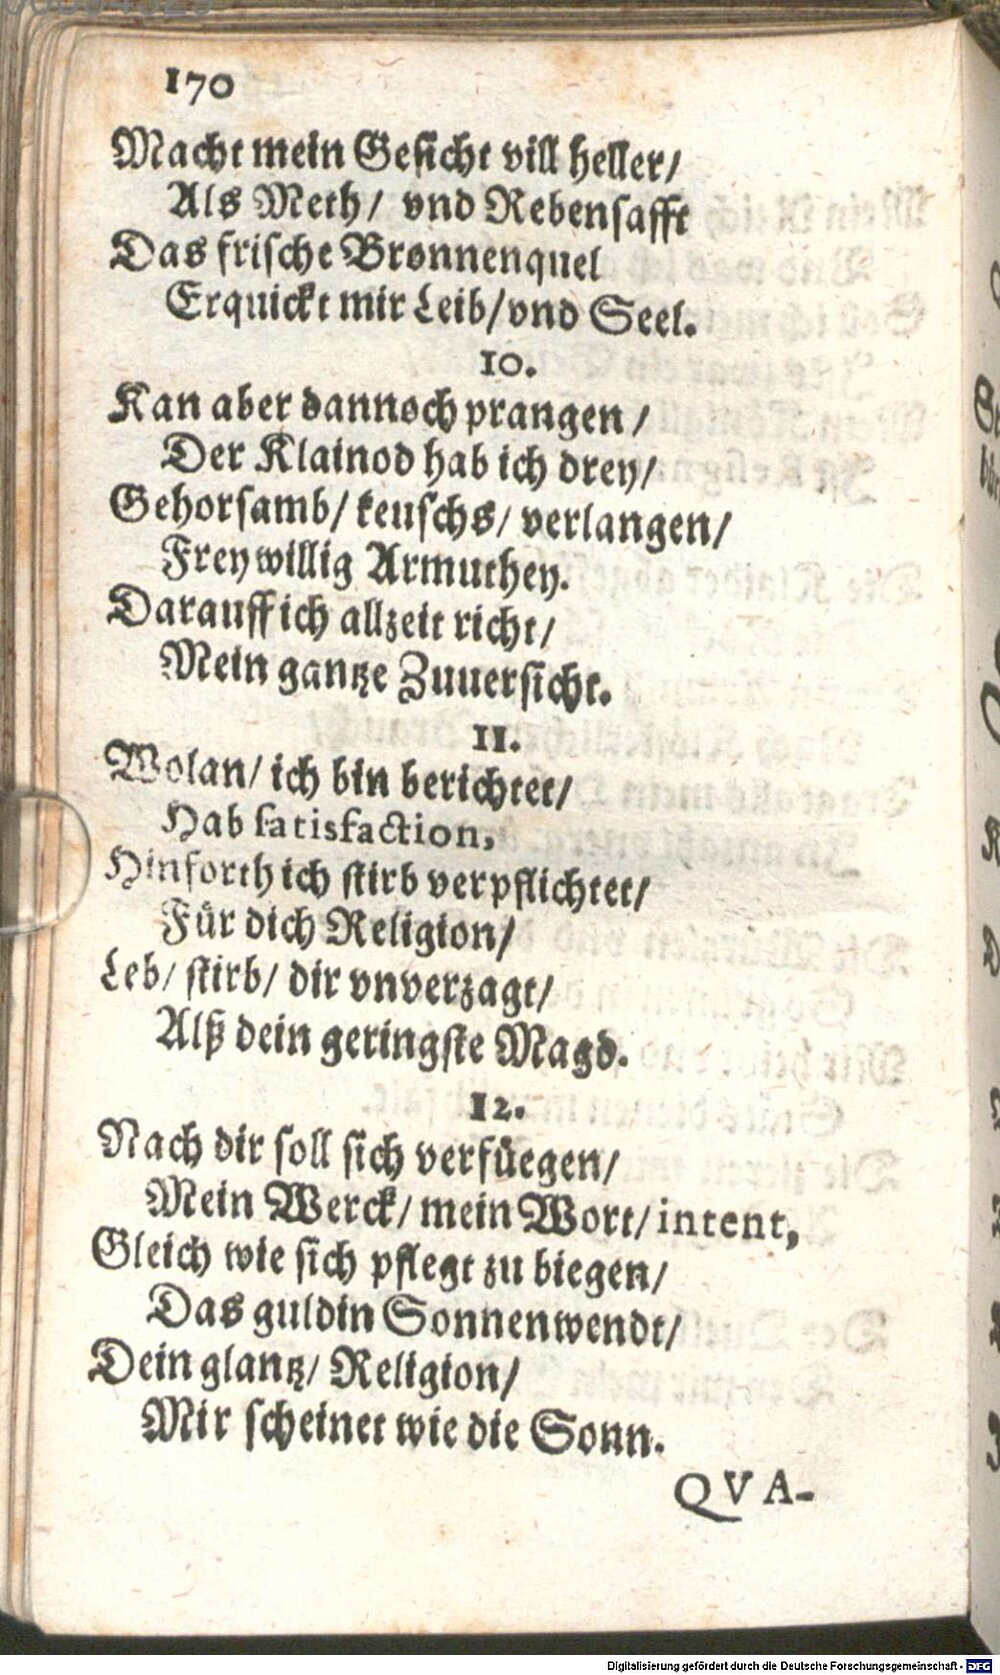 170
Macht mein Gesicht vill heller/
Als Meth/ vnd Rebensafft
Das frische Bronnenquel
Erquickt mir Leib/vnd Seel.
10.
Kan aber dannoch prangen/
Der Klainod hab ich drey/
Gehorsamb/ keuschs/ verlangen/
Freywillig Armuthey.
Darauff ich allzeit richt/
Mein gantze Zuuersicht.
11.
Wolan/ ich bin berichtet/
Hab satisfaction,
Hinforth ich stirb verpflichtet/
Für dich Religion/
Leb/ stirb/ dir vnverzagt/
Alß dein geringste Magd.
12.
Nach dir soll sich verfüegen/
Mein Werck/ mein Wort/ intent,
Gleich wie sich pflegt zu biegen/
Das guldin Sonnenwendt/
Dein glantz/ Religion/
Mir scheinet wie die Sonn.
QVA-
Digitalisierung gefördert durch die Deutsche Forschungsgemeinschaft - DFG